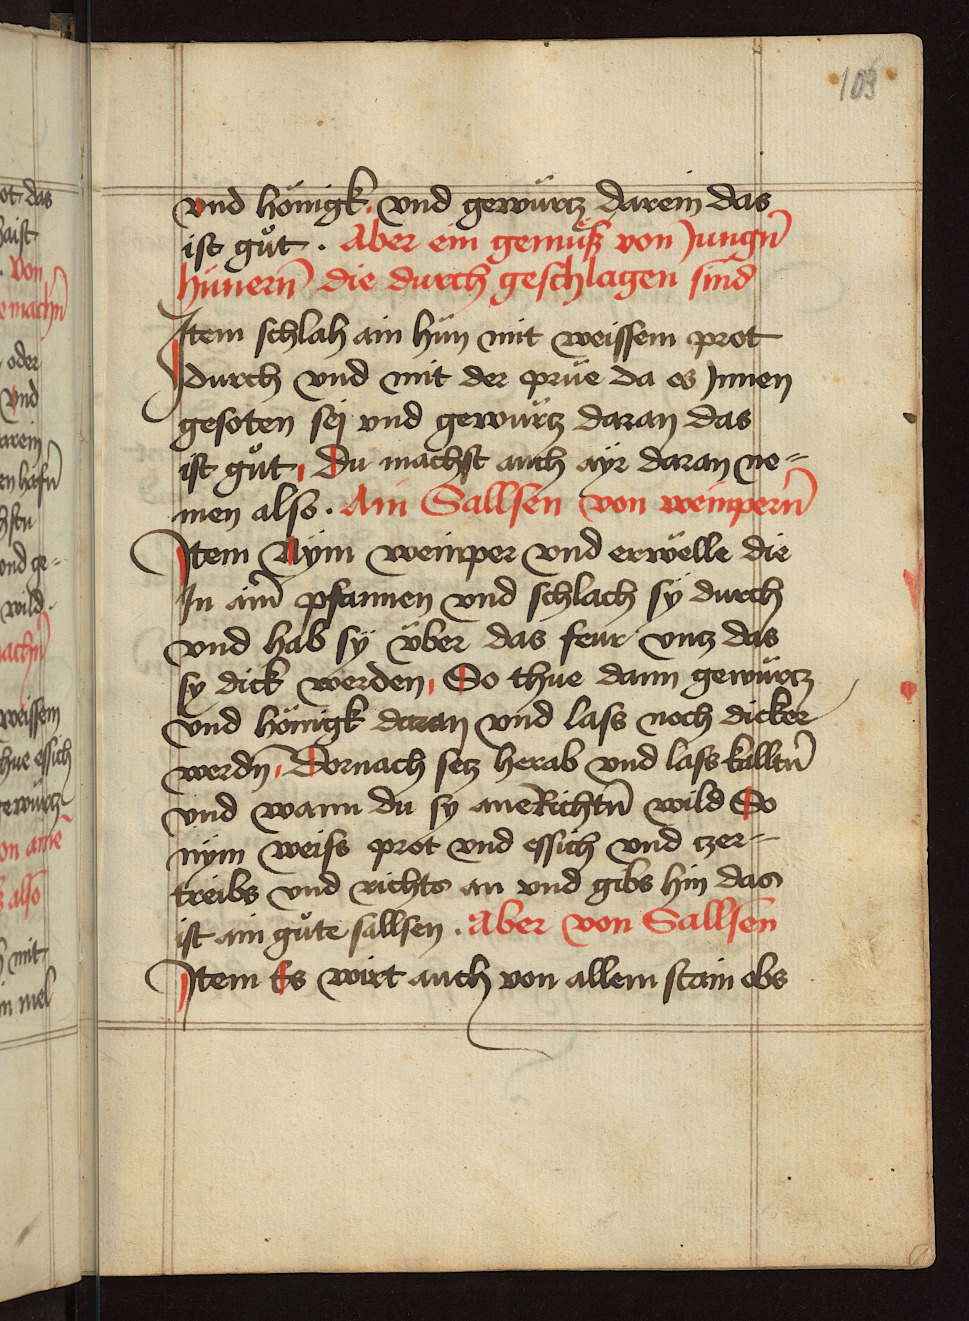 103
vnd hönigk vnd gewürtz darein das
ist gůt . Aber ein gemüß von Jungn̄
hünern̄ die durch geschlagen sind
Item schlah ain hün mit weissem prot
durch vnd mit der prüe da es Jnnen
gesoten sej vnd gewürtz daran das
ist gůt Du machst auch ayr daran ne-
men also . Ain Sallsen von weinpern̄
Item Nym weinper vnd erwëlle die
In aim̄ pfannen vnd schlach sÿ durch
vnd hab sÿ über das feur vntz das
sy dick werden So thue dann gewürtz
vnd hönigk daran vnd lass noch dicker
werdn̄ Dornach setz herab vnd lass kalltn̄
vnd wann du sy aneRichtn̄ wild So
nÿm weiss prot vnd essich vnd tzer-
treibs vnd richts an vnd gibs hin das
ist ain gůte sallsen . Aber von Sallsen
Item Es wirt auch von allem stain obs
ot das
haist
. Von
emachn̄
oder
vnd
arein
en hafn̄
vnd ge-
wild .
machn̄
weissem
thue essich
gewürtz
von aine
also
mit
in mel